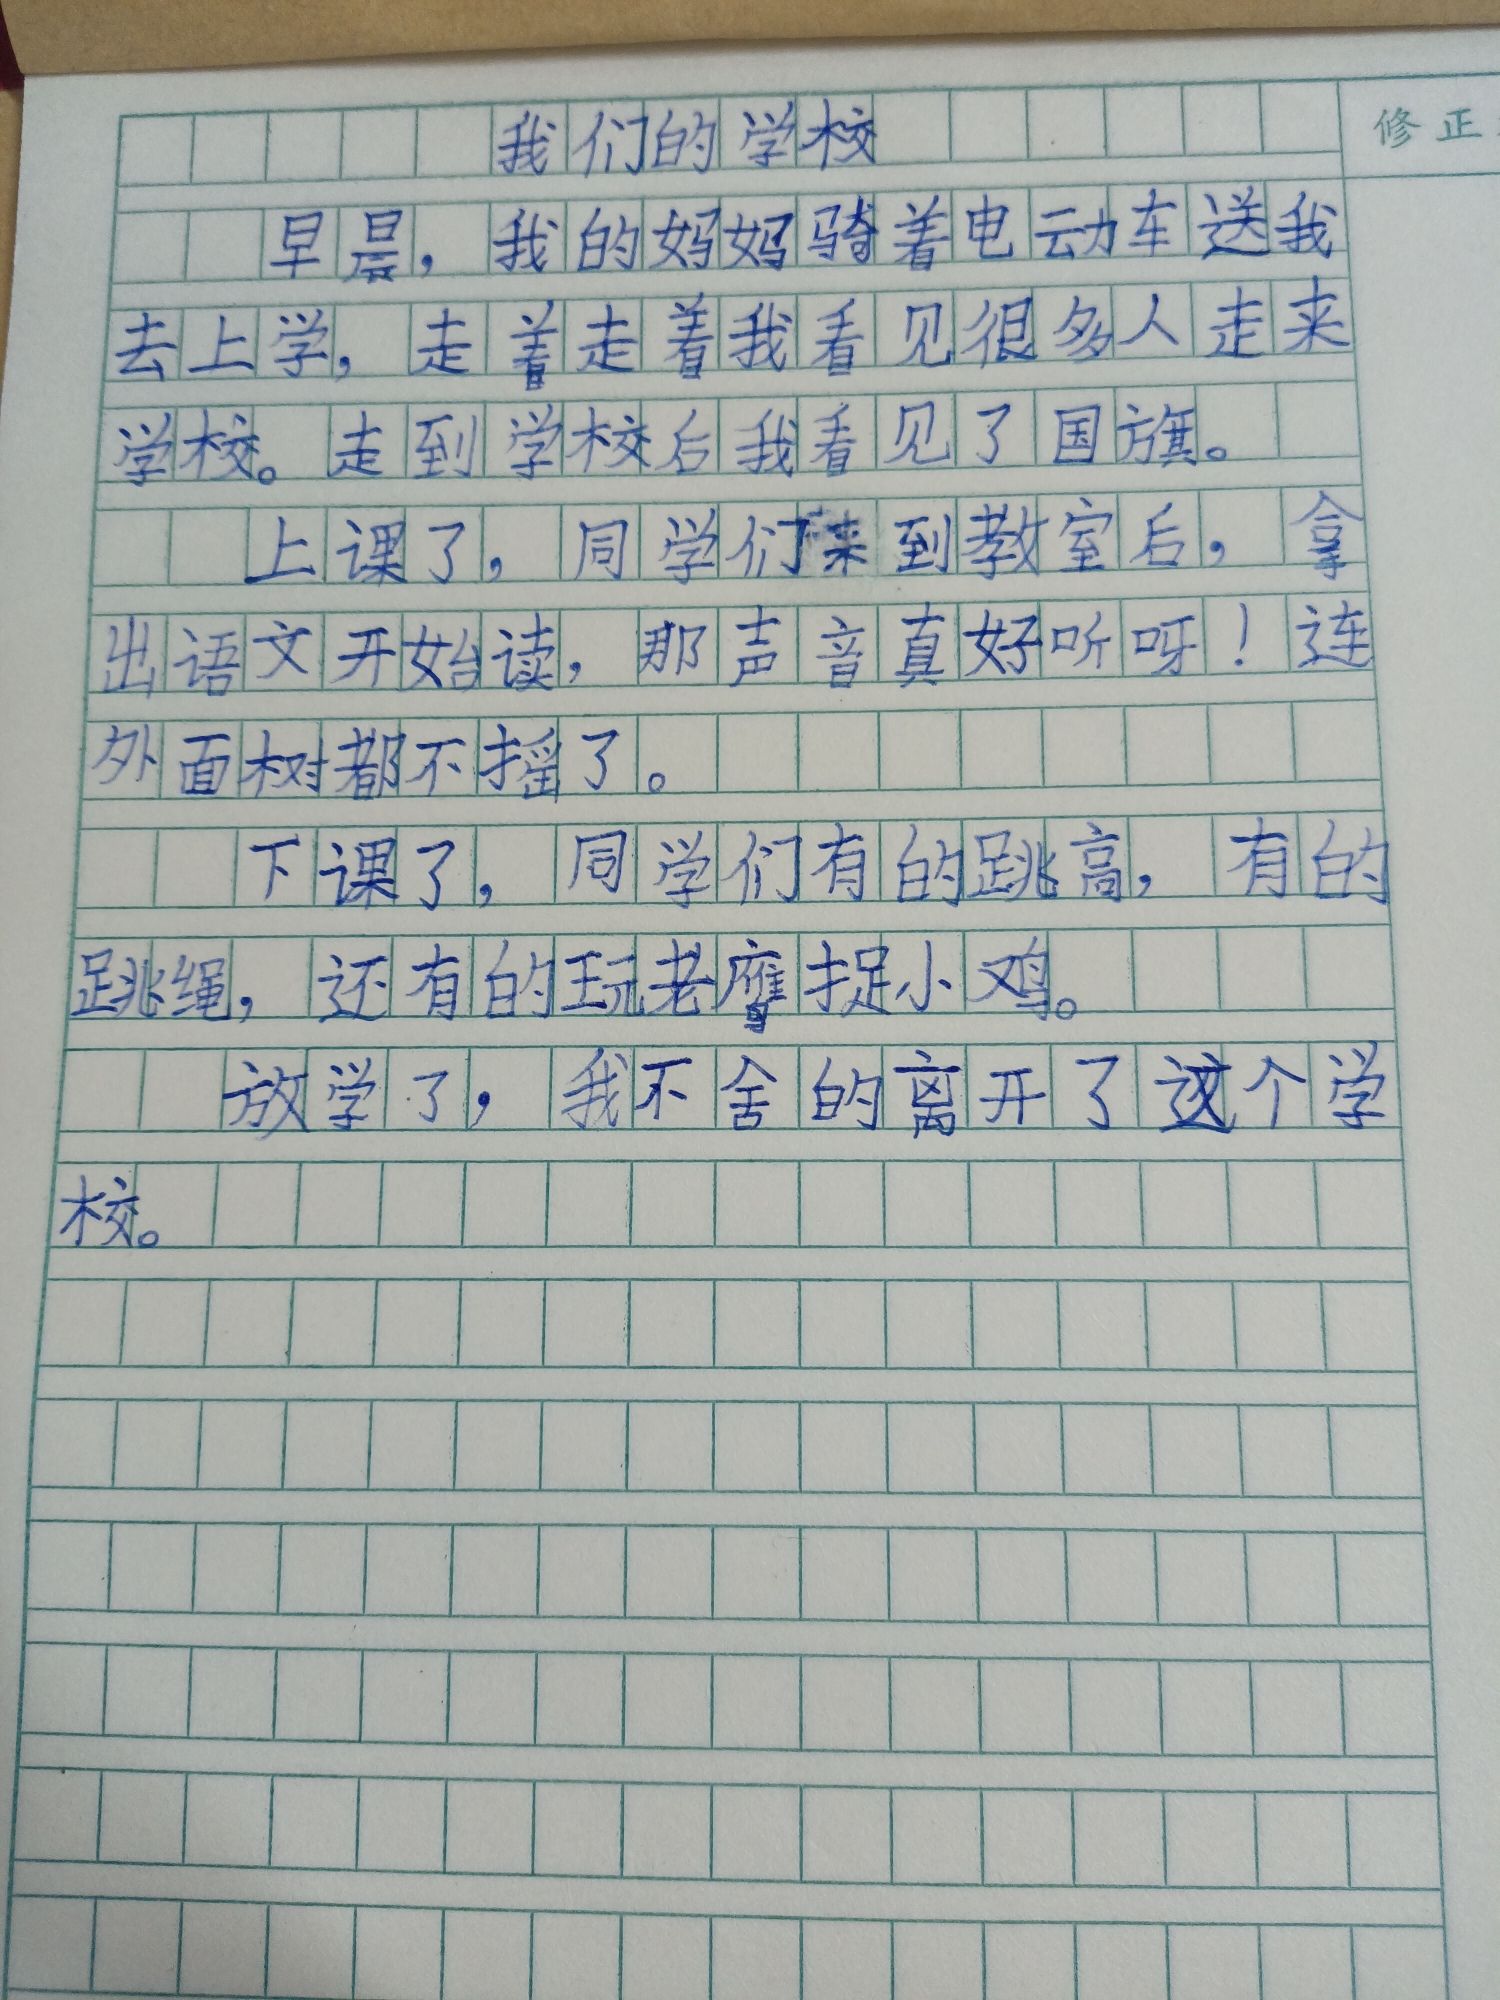 我们的学校
修正
早晨，我的妈妈骑着电动车送我
去上学，走着走着我看见很多人走来
学校。走到学校后我看见了国旗。
上课了，同学们来到教室后，拿
出语文开始读，那声音真好听呀！连
外面树都不摇了。
下课了，同学们有的跳高，有的
跳绳，还有的玩老鹰捉小鸡。
放学了，我不舍的离开了这个学
校。